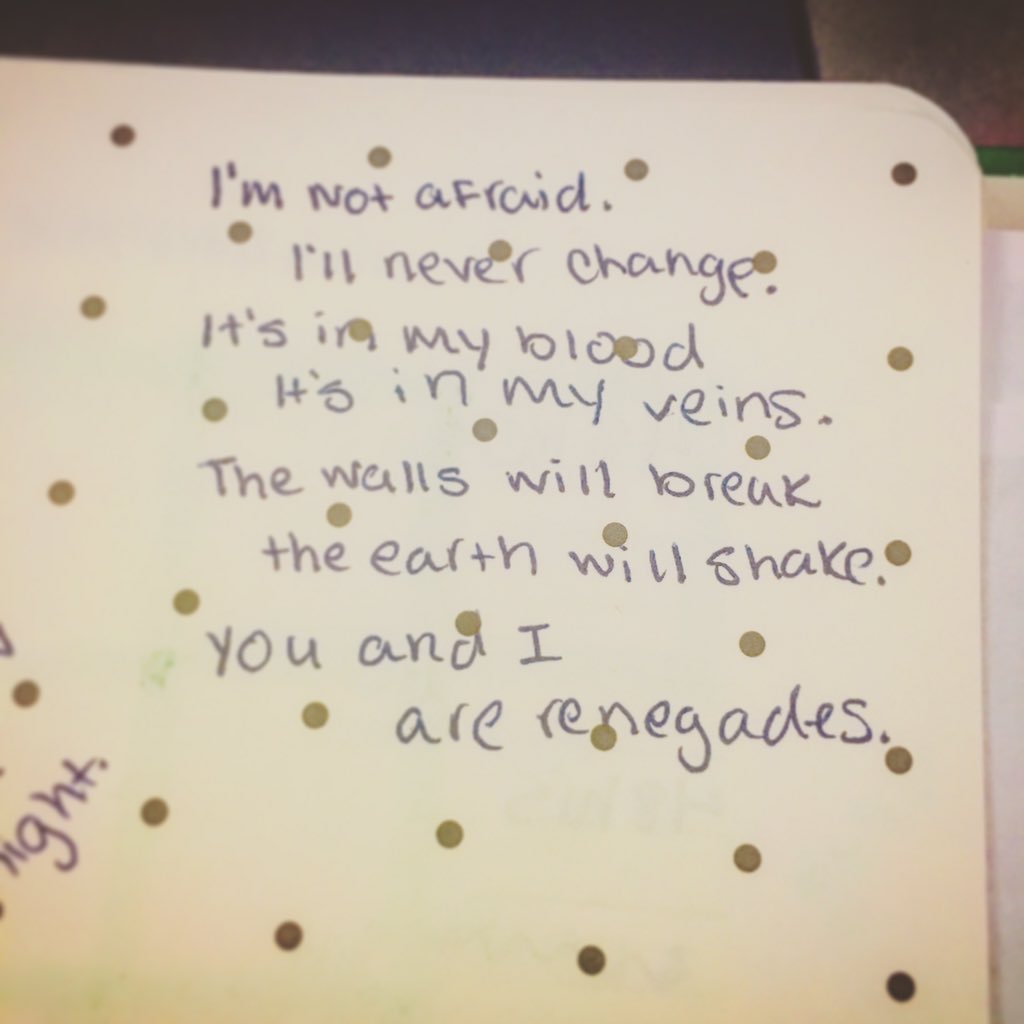 I'm not afraid.
I'll never change.
It's in my blood
It's in my veins.
The walls will break
the earth will shake.
You and I
are renegades.